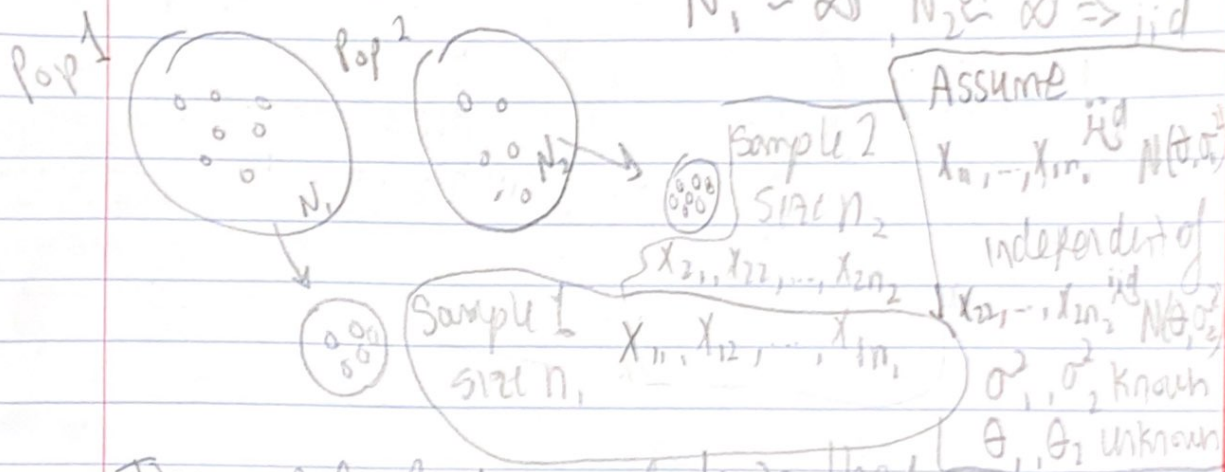 N₁ ≈ ∞ N₂ ≈ ∞ => iid
Pop 1
Pop 2
N₁
N₂
Sample 2
size n₂
X₂₁, X₂₂, ..., X₂ₙ₂
Sample 1
size n₁
X₁₁, X₁₂, ..., X₁ₙ₁
Assume
X₁₁, ..., X₁ₙ₁ iid N(θ₁, σ₁²)
independent of
X₂₂, ..., X₂ₙ₂ iid N(θ₂, σ₂²)
σ²₁, σ²₂ known
θ₁, θ₂ unknown